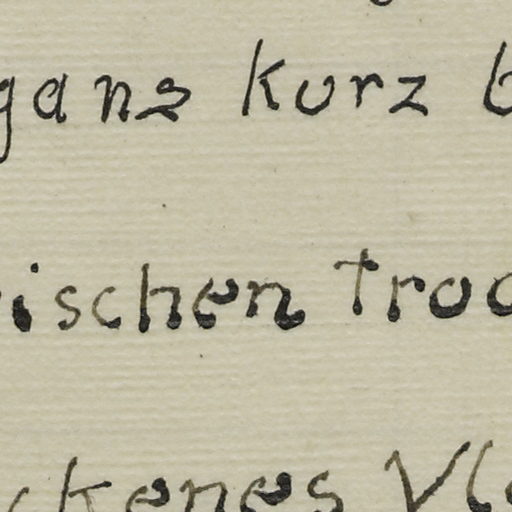 ganz kurz
ischen troc
ckenes Vl